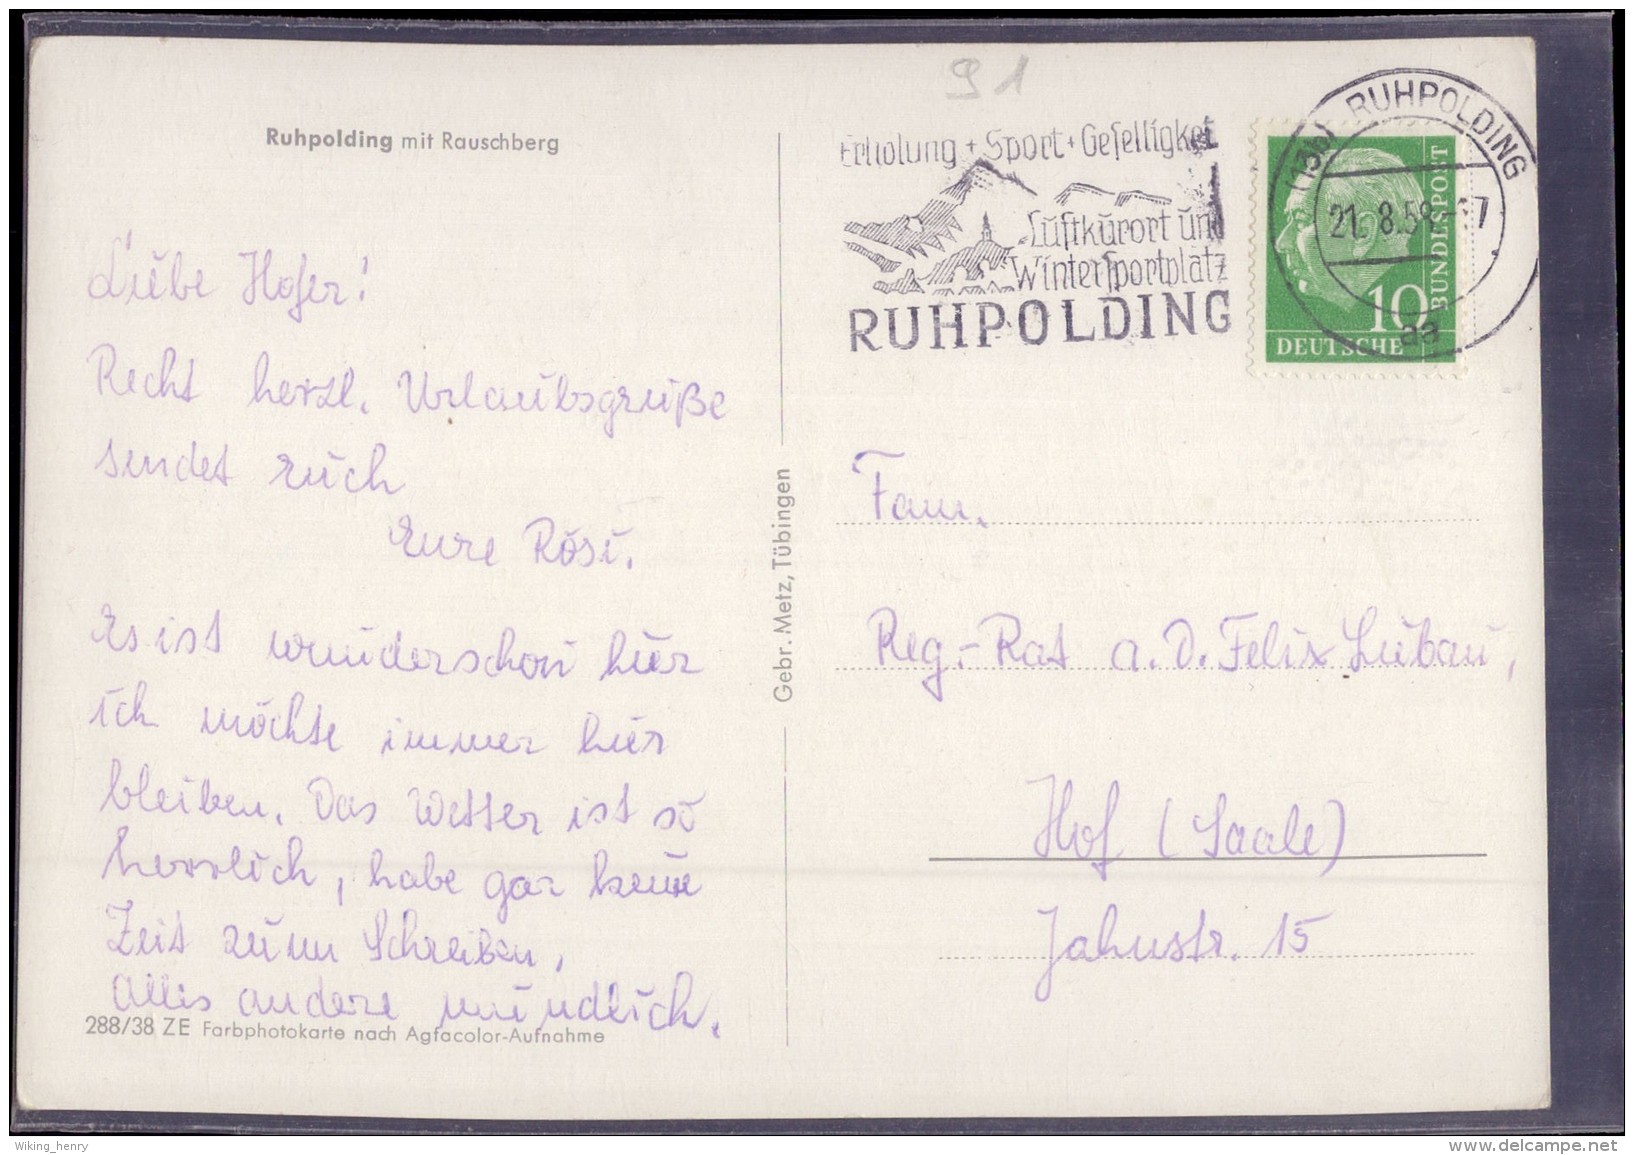 91
Ruhpolding mit Rauschberg
Erholung + Sport + Geselligkeit
Luftkurort und
Wintersportplatz
RUHPOLDING
(13b) RUHPOLDING
21. 8.58-17
aa
10
BUNDESPOST
DEUTSCHE
Liebe Hofer!
Recht herzl. Urlaubsgrüße
sendet euch
Eure Rosi.
Es ist wunderschön hier
ich möchte immer hier
bleiben. Das Wetter ist so
herrlich, habe gar keine
Zeit zum Schreiben,
alles andere mündlich.
288/38 ZE Farbphotokarte nach Agfacolor-Aufnahme
Gebr. Metz, Tübingen
Fam.
Reg.-Rat a.D. Felix Lubau,
Hof (Saale)
Jahnstr. 15
Wiking_henry
www.delcampe.net